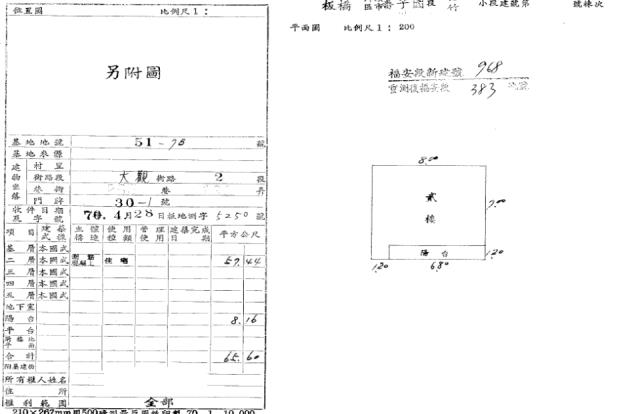 位置圖 比例尺1:
另附圖
基地地號 51-78 號
基地來源
建物坐落 村里
街路段 大觀街路 2 段
巷衖 巷 弄
門牌 30-1 號
收件日期及字號 70.4月28日板地測字5250號
項目 建築式樣 主體構造 使用種類 管理使用 建築完成日期 平方公尺
基層 本國式
二層 本國式 住宅 57.44
三層 本國式
四層 本國式
五層 本國式
地下室
陽台 8.16
平台
合計 65.60
附屬建物
所有權人姓名
住所
權利範圍 全部
板橋 區市 子園段 小段建號第 號棟次
平面圖 比例尺1:200
福安段新建號 968
重測後福安段 383 地號
8.00
貳樓
7.00
陽台
1.20 6.80 1.20